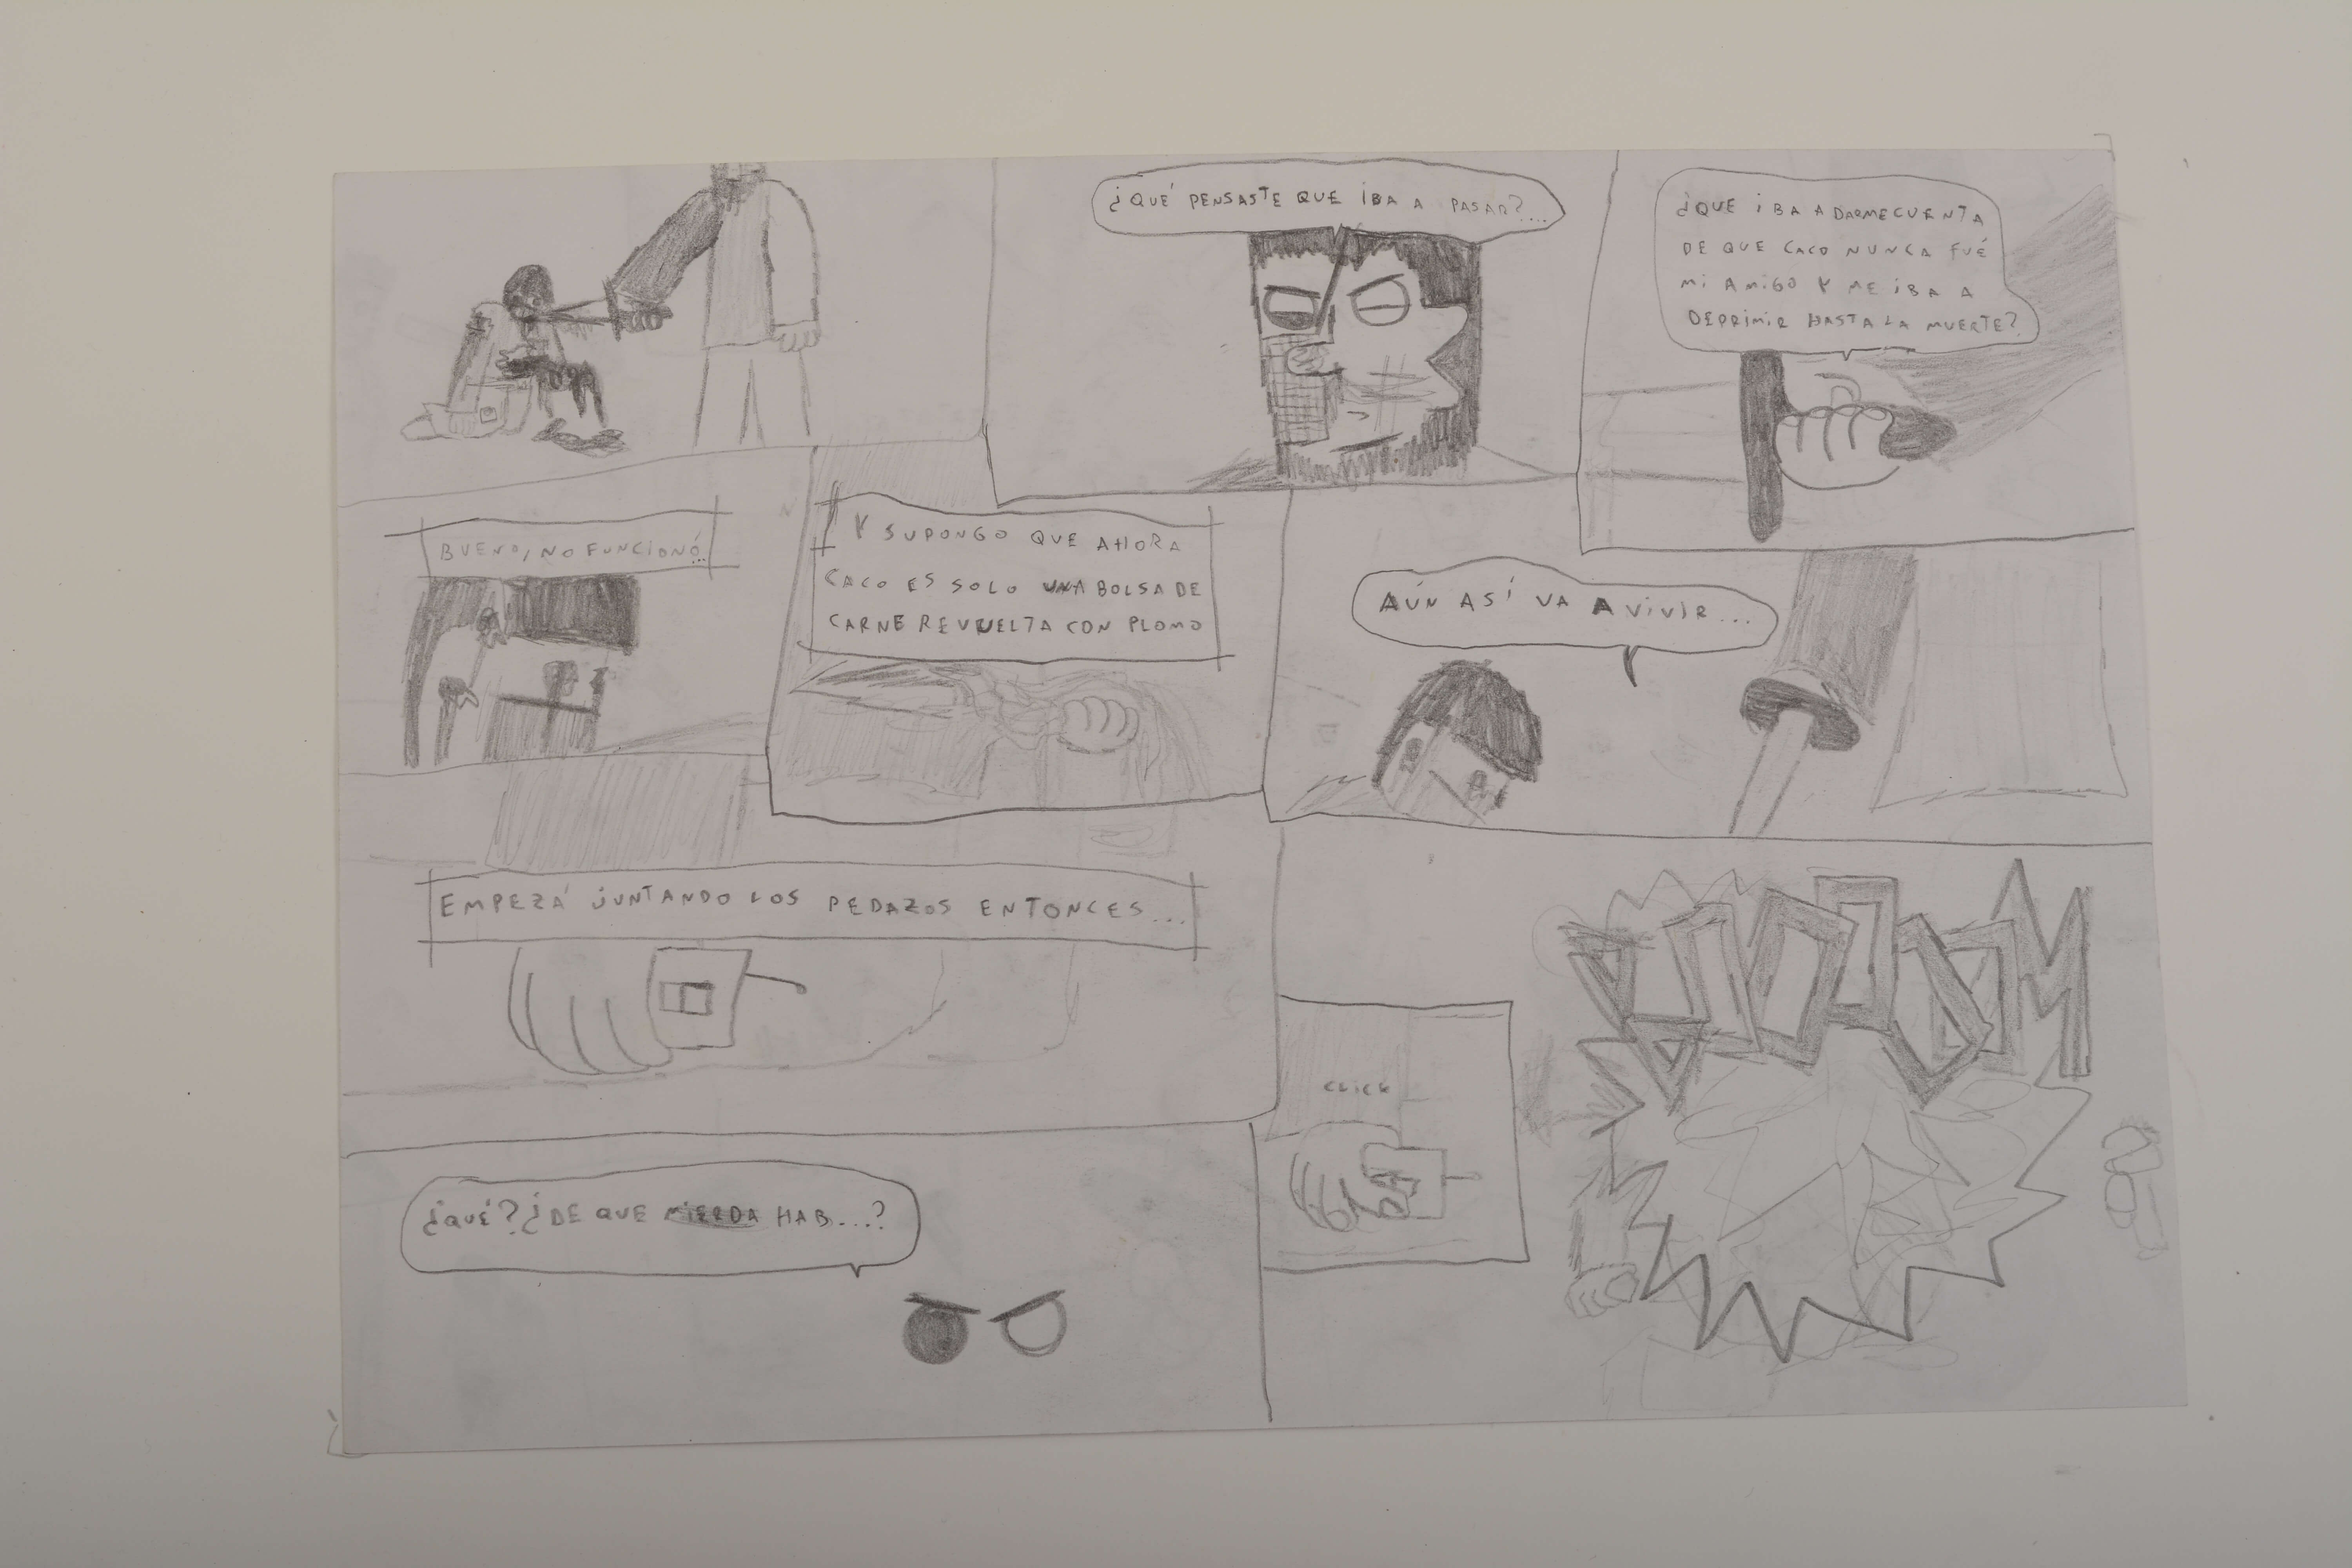 ¿QUÉ PENSASTE QUE IBA A PASAR?....
¿QUE IBA A DARME CUENTA
DE QUE CACO NUNCA FUÉ
MI AMIGO Y ME IBA A
DEPRIMIR HASTA LA MUERTE?
BUENO, NO FUNCIONÓ...
Y SUPONGO QUE AHORA
CACO ES SOLO UNA BOLSA DE
CARNE REVUELTA CON PLOMO
AÚN ASÍ VA A VIVIR...
EMPEZÁ JUNTANDO LOS PEDAZOS ENTONCES...
¿QUÉ? ¿DE QUE MIERDA HAB....?
CLICK